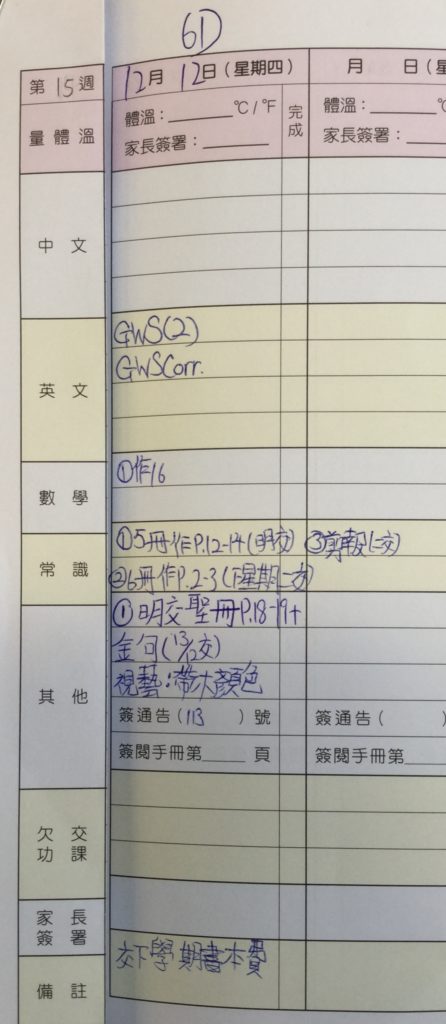 6D
第15週
12月12日(星期四)
月 日(星
量體溫
體溫:______℃/℉
完成
體溫:______℃
家長簽署:______
家長簽署:____
中文
英文
GWS(2)
GWSCorr.
數學
①作16
常識
①5冊作P.12-14(明交) ③剪報(二交)
②6冊作P.2-3(下星期二交)
其他
①明交聖冊P.18-19+
金句(13/12交)
視藝:帶大顏色
簽通告(113)號
簽通告( )
簽閱手冊第____頁
簽閱手冊第____
欠交功課
家長簽署
備註
交下學期書本費